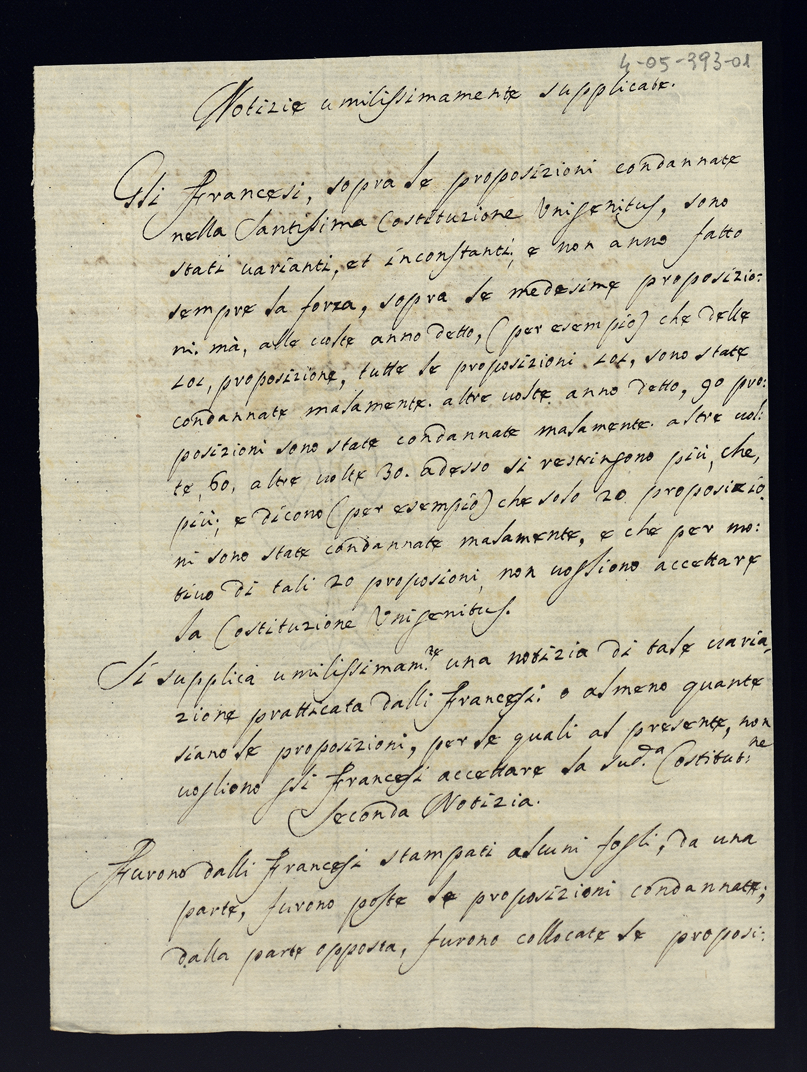 4-05-393-01
Notizie umilissimamente supplicate.
Gli Francesi, sopra le proposizioni condannate
nella Santissima Costituzione Unigenitus, sono
stati varianti, et inconstanti; e non anno fatto
sempre la forza, sopra le medesime proposizio:
ni. mà, alle volte anno detto, (per esempio) che delle
101, proposizione, tutte le proposizioni 101, sono state
condannate malamente. altre volte anno detto, 90 pro:
posizioni sono state condannate malamente. altre vol:
te, 60, altre volte 30. adesso si restringono più, che,
più; e dicono (per esempio) che solo 20 proposizio:
ni sono state condannate malamente, e che per mo:
tivo di tali 20 proposioni, non vogliono accettare
la Costituzione Unigenitus.
Si supplica umilissimam.te una notizia di tale varia,
zione pratticata dalli Francesi. o almeno quante
siano le proposizioni, per le quali al presente, non
vogliono gli Francesi accettare la sud.a Costitut:ne
Seconda Notizia.
Furono dalli Francesi stampati alcuni fogli, da una
parte, furono poste le proposizioni condannate;
dalla parte opposta, furono collocate le proposi: